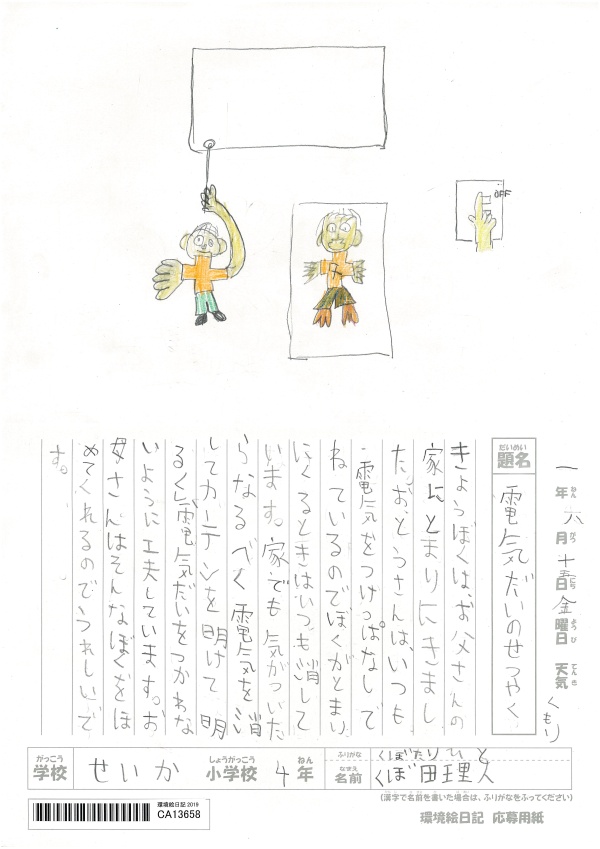 OFF
一年八月十五日金曜日 天気くもり
ねん がつ にち ようび てんき
だいめい
題名 電気だいのせつやく
きょうぼくは、お父さんの
家にとまりにきまし
た。おとうさんは、いつも
電気をつけっぱなしで
ねているのでぼくがとまり
にくるときはいつも消して
います。家でも気がついた
らなるべく電気を消
してカーテンを明けて明
るく電気だいをつかわな
いように工夫しています。お
母さんはそんなぼくをほ
めてくれるのでうれしいで
す。
がっこう しょうがっこう ねん
学校 せいか 小学校 4年
ふりがな くぼたりひと
なまえ
名前 くぼ田理人
(漢字で名前を書いた場合は、ふりがなをふってください)
環境絵日記 2019
CA13658
環境絵日記 応募用紙